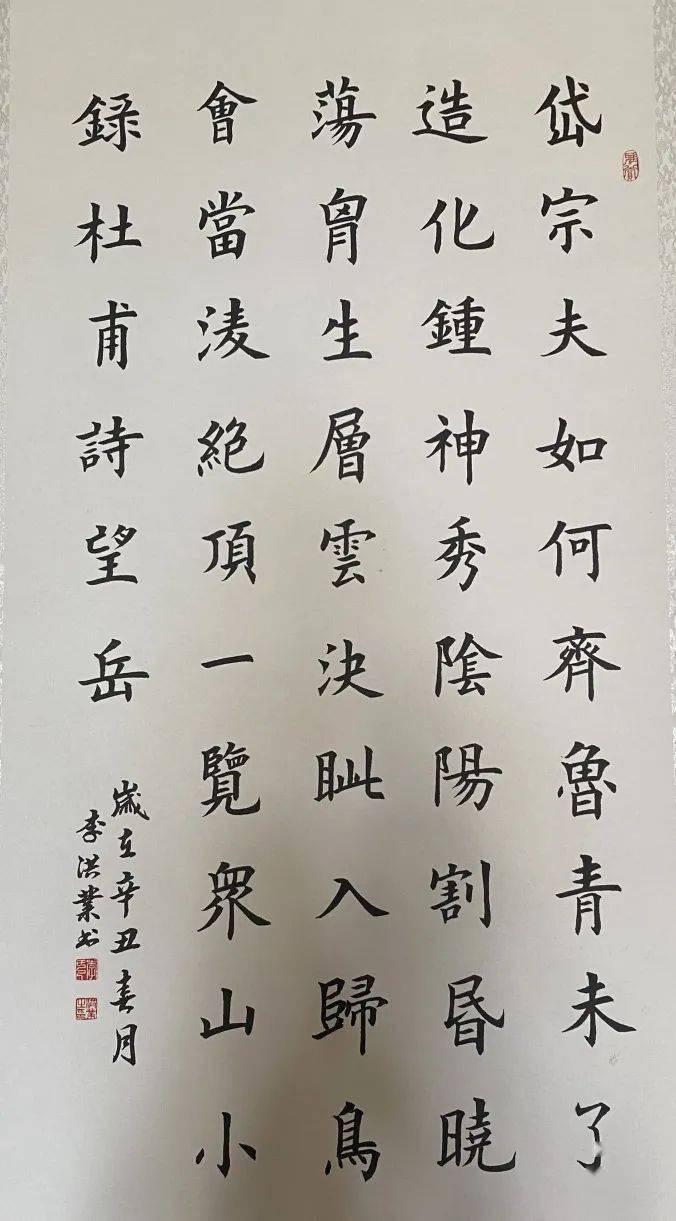 岱宗夫如何齊魯青未了
造化鍾神秀陰陽割昏曉
蕩胷生層雲決眦入歸鳥
會當淩絕頂一覽衆山小
録杜甫詩望岳
歲在辛丑春月
李洪業书